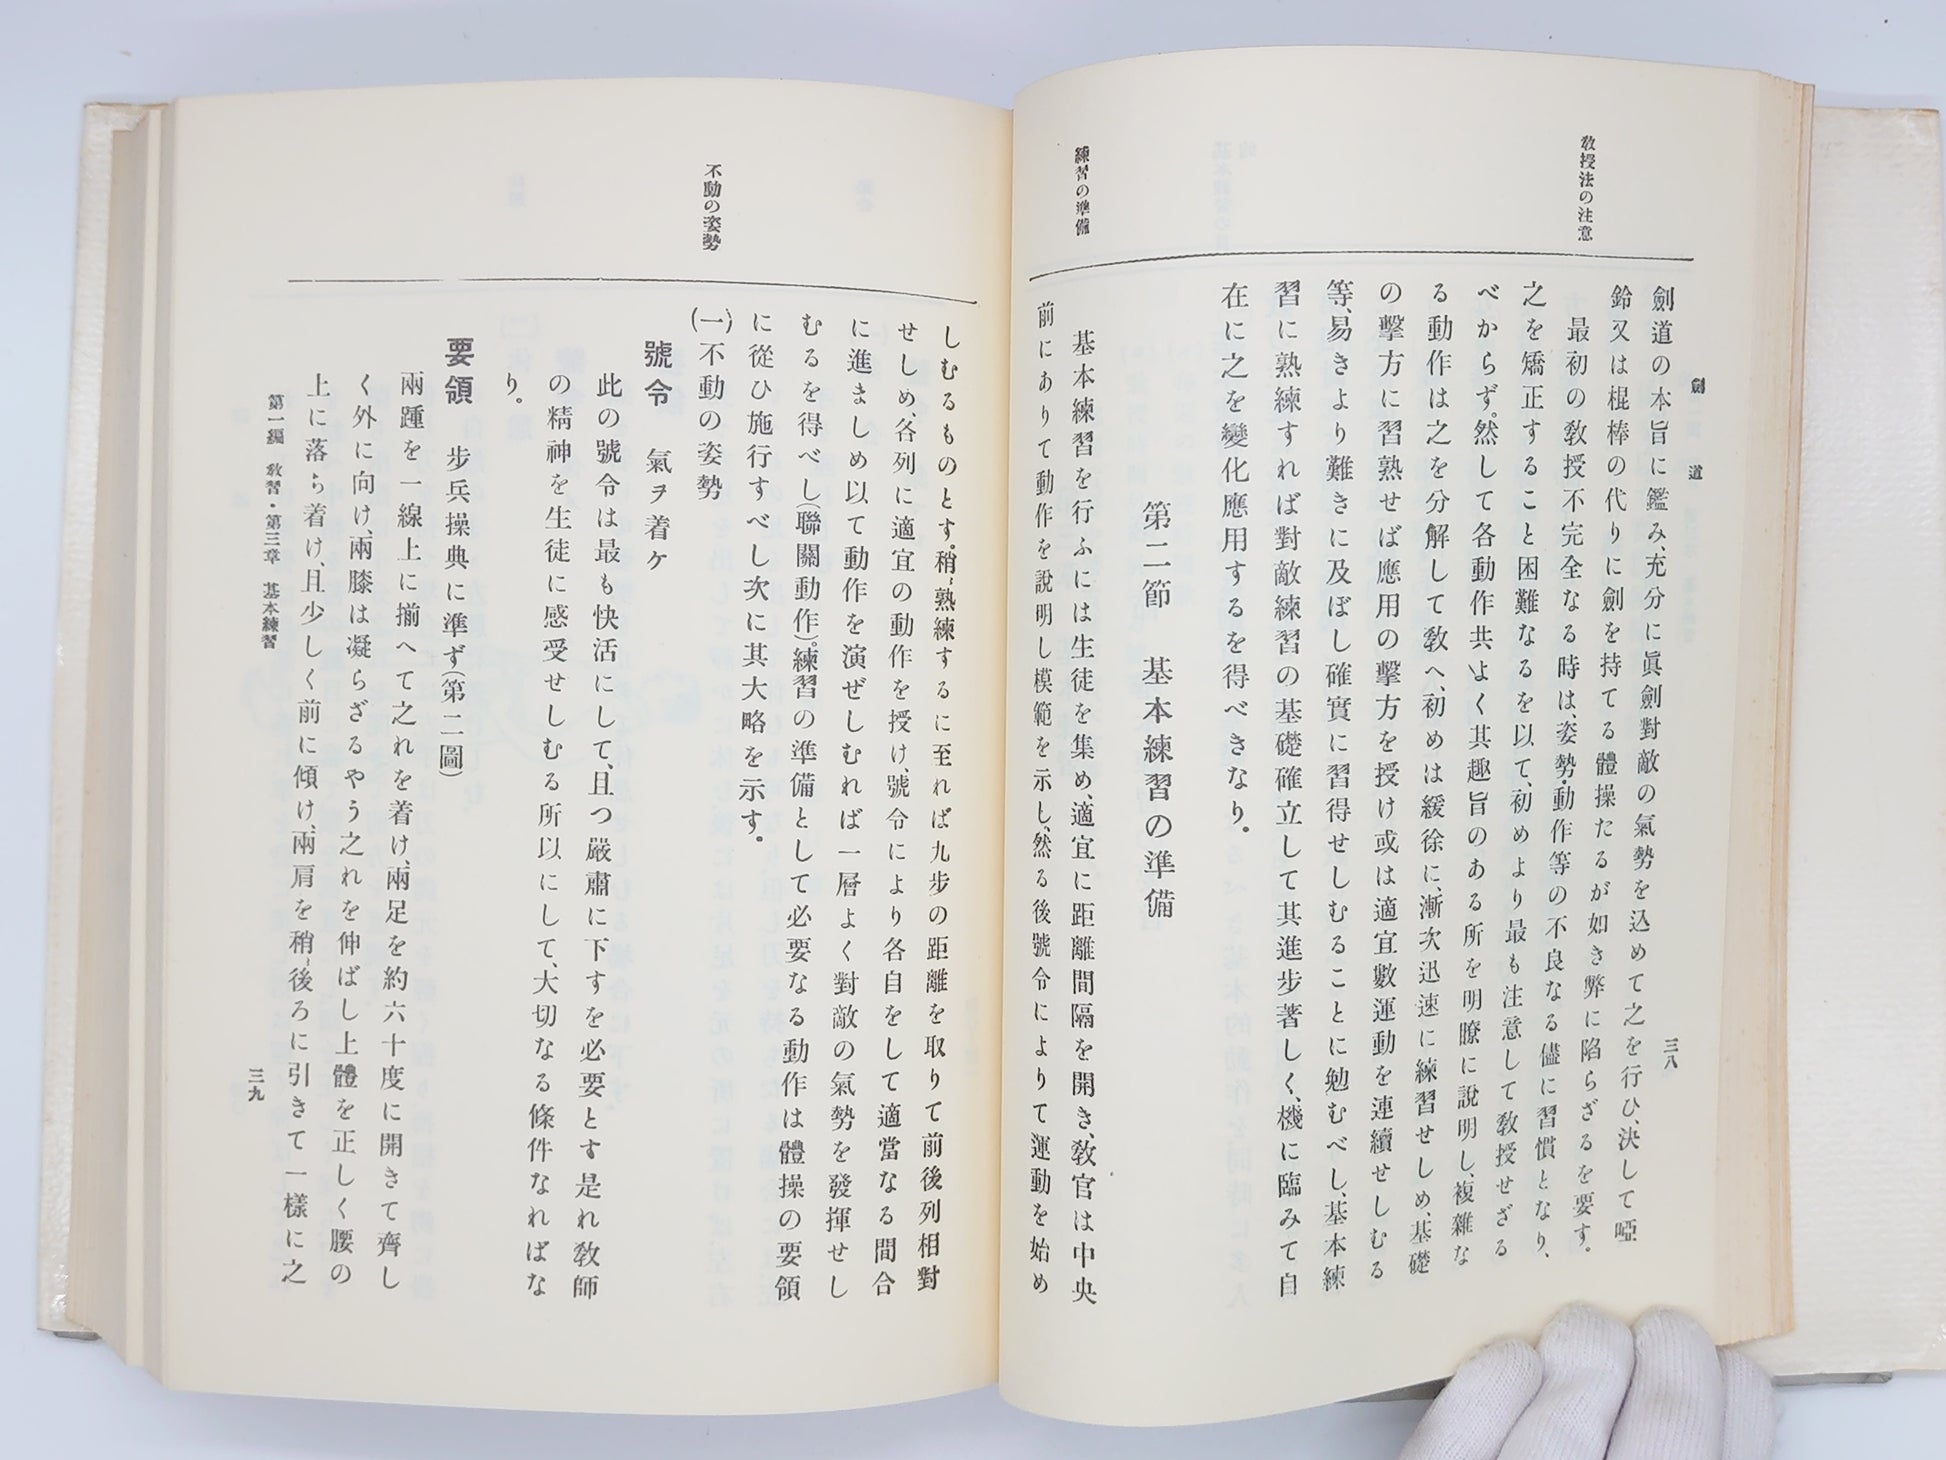 劍道
三八
敎授法の注意
劍道の本旨に鑑み、充分に眞劍對敵の氣勢を込めて之を行ひ、決して啞
鈴又は棍棒の代りに劍を持てる體操たるが如き弊に陷らざるを要す。
最初の敎授不完全なる時は、姿勢・動作等の不良なる儘に習慣となり、
之を矯正すること困難なるを以て、初めより最も注意して敎授せざる
べからず。然して各動作共よく其趣旨のある所を明瞭に說明し、複雜な
る動作は之を分解して敎へ、初めは緩徐に、漸次迅速に練習せしめ、基礎
の擊方に習熟せば應用の擊方を授け或は適宜數運動を連續せしむる
等、易きより難きに及ぼし確實に習得せしむることに勉むべし、基本練
習に熟練すれば對敵練習の基礎確立して其進步著しく、機に臨みて自
在に之を變化應用するを得べきなり。
第二節 基本練習の準備
練習の準備
基本練習を行ふには生徒を集め、適宜に距離間隔を開き、敎官は中央
前にありて動作を說明し模範を示し、然る後號令によりて運動を始め
しむるものとす。稍〻熟練するに至れば九步の距離を取りて前後列相對
せしめ、各列に適宜の動作を授け、號令により各自をして適當なる間合
に進ましめ以て動作を演ぜしむれば一層よく對敵の氣勢を發揮せし
むるを得べし(聯關動作)。練習の準備として必要なる動作は體操の要領
に從ひ施行すべし次に其大略を示す。
不動の姿勢
(一)不動の姿勢
號令 氣ヲ着ケ
此の號令は最も快活にして、且つ嚴肅に下すを必要とす是れ敎師
の精神を生徒に感受せしむる所以にして、大切なる條件なればな
り。
要領 步兵操典に準ず(第二圖)
兩踵を一線上に揃へて之れを着け、兩足を約六十度に開きて齊し
く外に向け、兩膝は凝らざるやう之れを伸ばし上體を正しく腰の
上に落ち着け、且少しく前に傾け、兩肩を稍〻後ろに引きて一樣に之
第一編 敎習・第三章 基本練習
三九